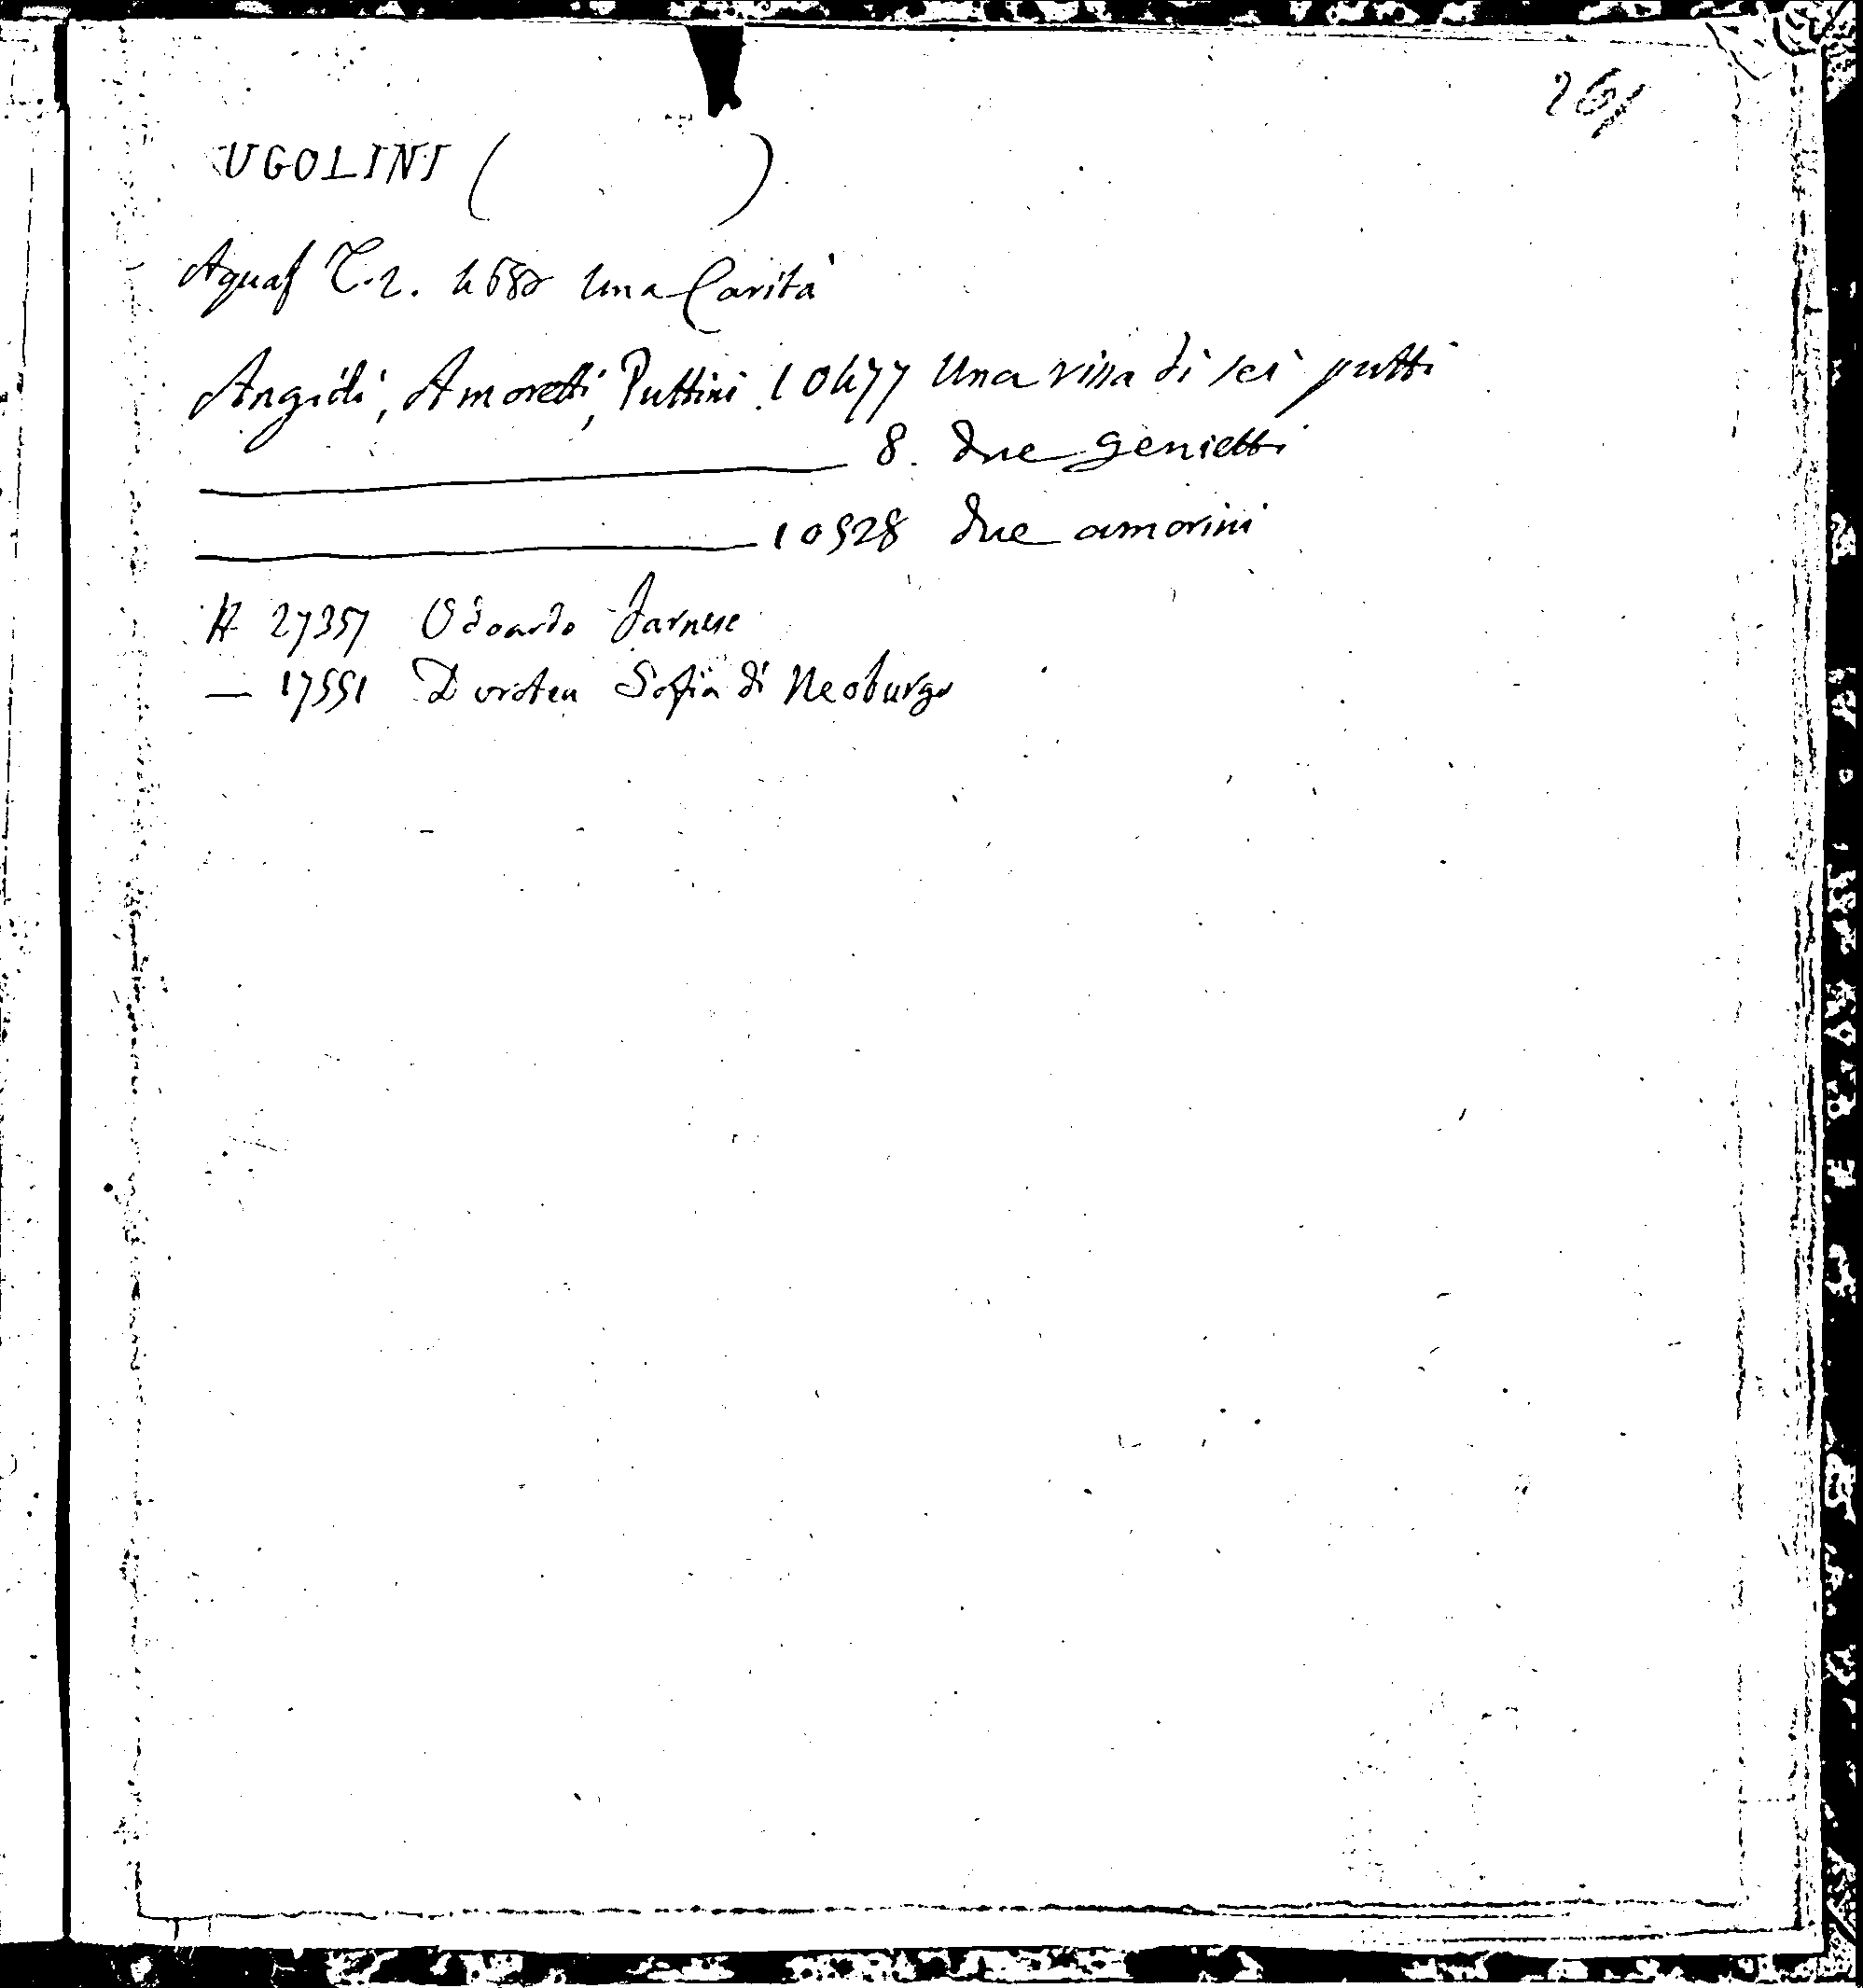 261
UGOLINI ( )
Aquaf T.2. 4680 Una Carità
Angioli, Amoretti, Puttini. 10477 Una rissa di sei putti
8. due genietti
10528 due amorini
R 27357 Odoardo Farnese
— 17551 Dorotea Sofia di Neoburgo